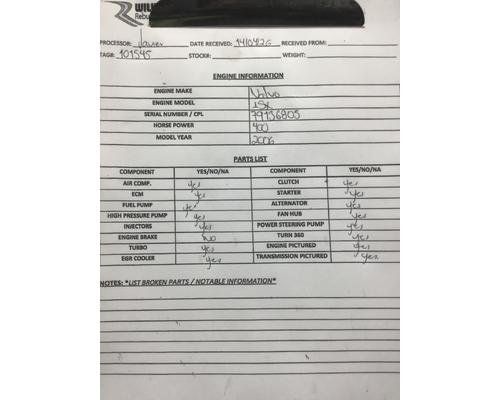 WILL
Rebu
PROCESSOR: Javier DATE RECEIVED: 14/04/26 RECEIVED FROM:
TAG#: 101545 STOCK#: WEIGHT:
ENGINE INFORMATION
ENGINE MAKE Volvo
ENGINE MODEL ISX
SERIAL NUMBER / CPL 79136805
HORSE POWER 400
MODEL YEAR 2006
PARTS LIST
COMPONENT YES/NO/NA COMPONENT YES/NO/NA
AIR COMP. yes CLUTCH yes
ECM yes STARTER yes
FUEL PUMP yes ALTERNATOR yes
HIGH PRESSURE PUMP yes FAN HUB yes
INJECTORS yes POWER STEERING PUMP yes
ENGINE BRAKE NO TURN 360 yes
TURBO yes ENGINE PICTURED yes
EGR COOLER yes TRANSMISSION PICTURED yes
NOTES: *LIST BROKEN PARTS / NOTABLE INFORMATION*